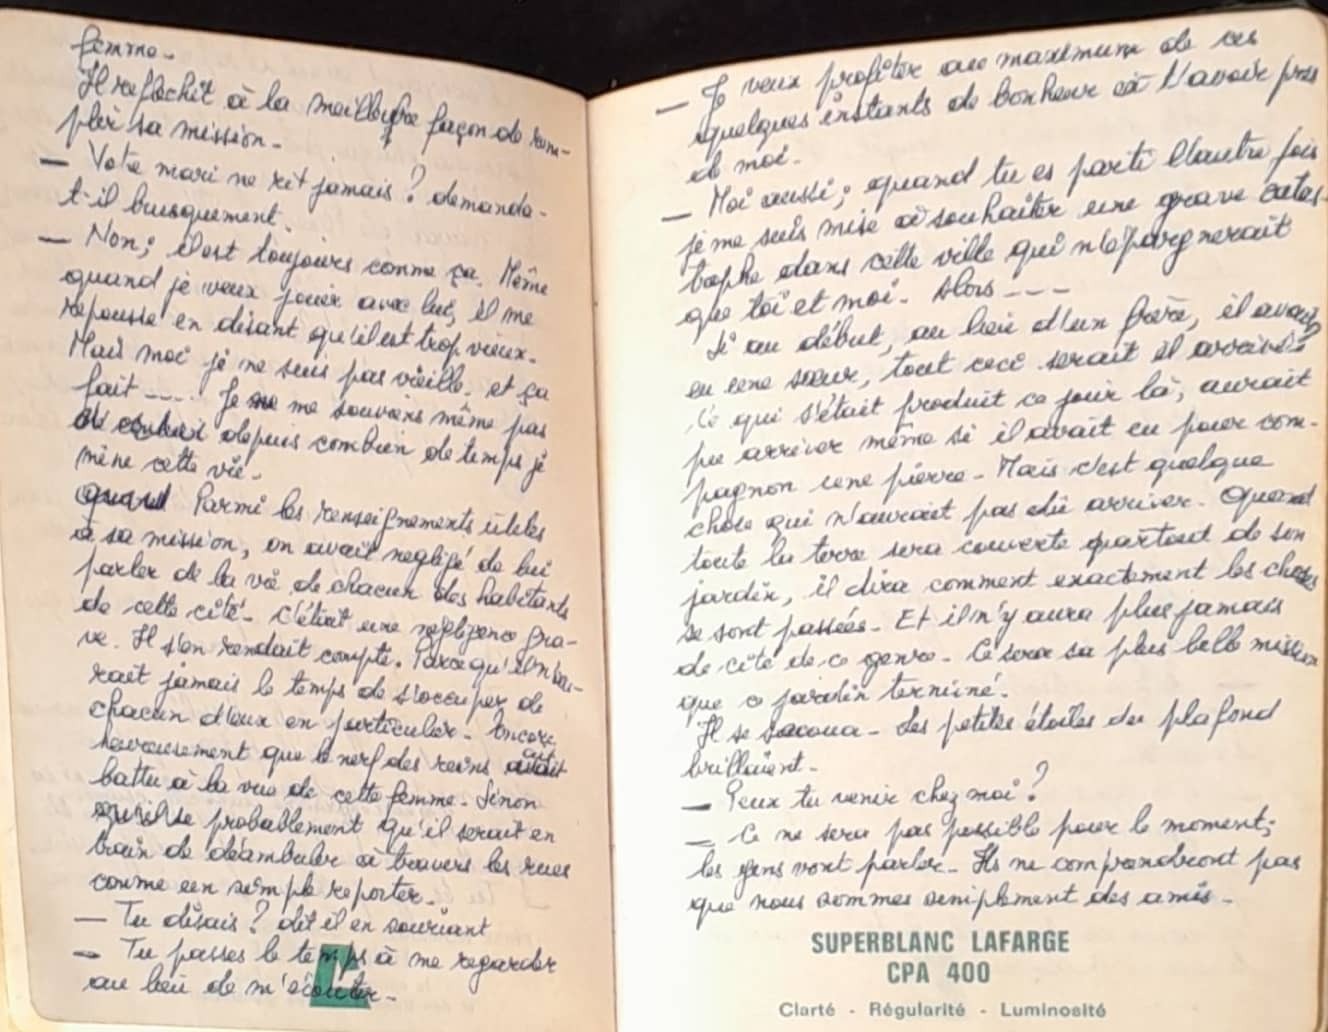 femme.
Il réflechit à la meilleure façon de rem-
plir sa mission.
— Votre mari ne rit jamais ? demanda-
t-il brusquement.
— Non ; il est toujours comme ça. Même
quand je veux jouer avec lui, il me
repousse en disant qu'il est trop vieux.
Mais moi je ne suis pas vieille. et ça
fait ---- Je ne me souviens même pas
depuis combien de temps je
mène cette vie.
Parmi les renseignements utiles
à sa mission, on avait negligé de lui
parler de la vie de chacun des habitants
de cette cité. C'était une négligence gra-
ve. Il s'en rendait compte. Parce qu'il n'au-
rait jamais le temps de s'occuper de
chacun d'eux en particulier. Encore
heureusement que le nerf des reins ait
battu à la vue de cette femme. Sinon
probablement qu'il serait en
train de déambuler à travers les rues
comme un simple reporter.
— Tu disais ? dit il en souriant
— Tu passes le temps à me regarder
au lieu de m'écouter.
— Je veux profiter au maximum de ces
quelques instants de bonheur à t'avoir près
de moi.
— Moi aussi ; quand tu es parti l'autre fois
je me suis mise à souhaiter une grave catas-
trophe dans cette ville qui n'épargnerait
que toi et moi. Alors ----
Si au début, au lieu d'un frère, il avait
eu une sœur, tout ceci serait il arrivé ?
Ce qui s'était produit ce jour là, aurait
pu arriver même si il avait eu pour com-
pagnon une pierre. Mais c'est quelque
chose qui n'aurait pas dû arriver. Quand
toute la terre sera couverte partout de son
jardin, il dira comment exactement les choses
se sont passées. Et il n'y aura plus jamais
de cité de ce genre. Ce sera sa plus belle mission
que ce jardin terminé.
Il se secoua. Les petites étoiles du plafond
brillaient.
— Peux tu venir chez moi ?
— Ce ne sera pas possible pour le moment ;
les gens vont parler. Ils ne comprendront pas
que nous sommes simplement des amis.
SUPERBLANC LAFARGE
CPA 400
Clarté - Régularité - Luminosité